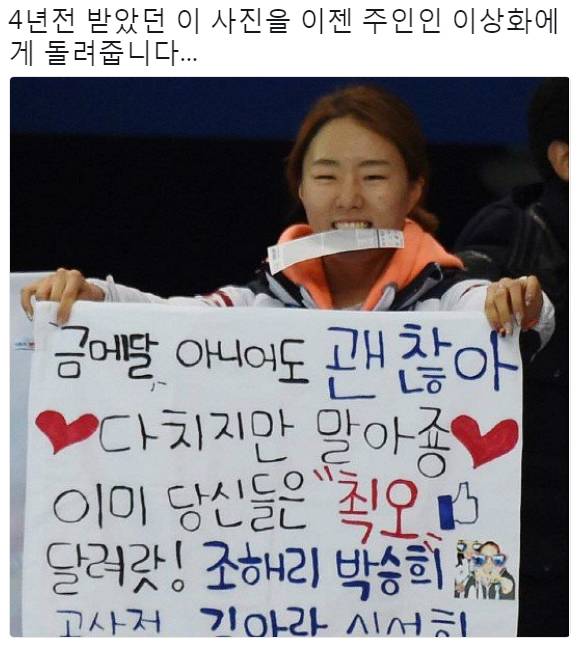 4년전 받았던 이 사진을 이젠 주인인 이상화에
게 돌려줍니다...
금메달, 아니어도 괜찮아
다치지만 말아죵
이미 당신들은 "최오"
달려랏! 조해리 박승희
김아라